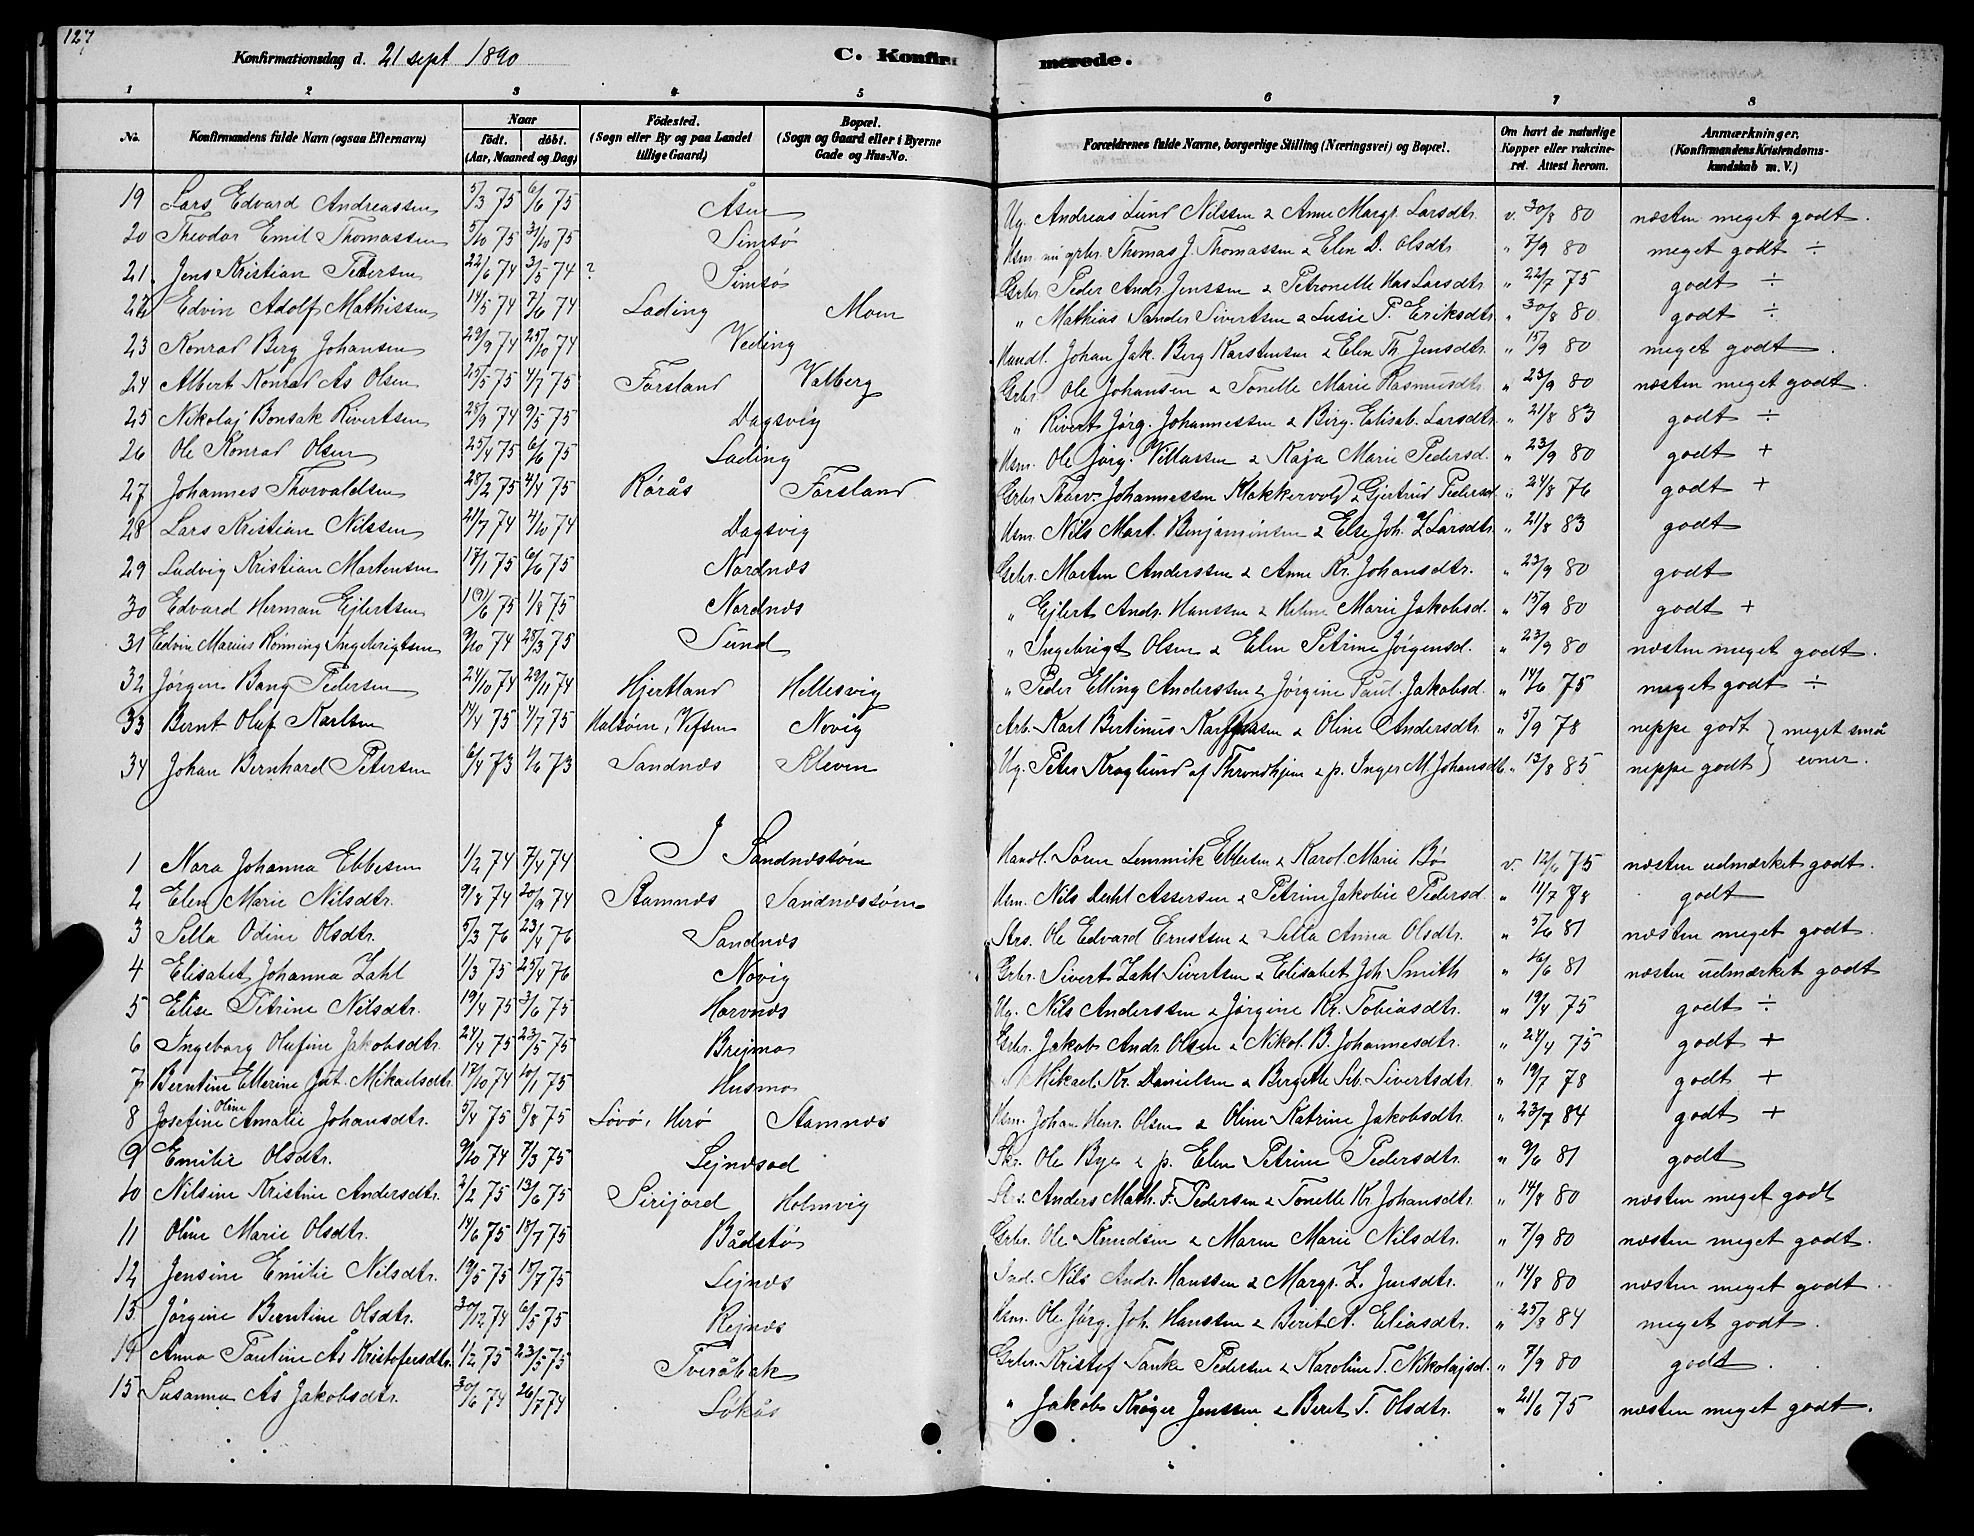 127
Konfirmationsdag d. 21 sept 1890
C. Konfirmerede.
1 2 3 4 5 6 7 8
No. Konfirmandens fulde Navn (ogsaa Efternavn) Naar født. døbt. (Aar, Maaned og Dag) Fødested. (Sogn eller By og paa Landet tillige Gaard) Bopæl. (Sogn og Gaard eller i Byerne Gade og Hus-No. Forældrenes fulde Navne, borgerlige Stilling (Næringsvei) og Bopæl. Om havt de naturlige Kopper eller vakcineret. Attest herom. Anmærkninger. (Konfirmandens Kristendomskundskab m. V.)
19 Lars Edvard Andreassen 5/3 75 6/6 75 Åsen Ug. Andreas Lund Nilssen & Anne Margr. Larsdtr. v. 30/8 80 næsten meget godt.
20 Theodor Emil Thomassen 5/10 75 31/10 75 Simsø Hsm. Thomas J. Thomassen & Elen D. Olsdtr. " 7/9 80 meget godt ÷
21. Jens Kristian Petersen 22/6 74 3/5 74 ? Simsø Grbr. Peder Andr. Jenssen & Petronelle Larsdtr " 22/7 75 godt ÷
22 Edvin Adolf Mathissen 14/5 74 7/6 74 Lading Moen " Mathias Sander Sivertsen & Lusie P. Eriksdtr. " 30/8 80 godt ÷
23 Konrad Berg Johansen 29/9 74 25/10 74 Veding Handl. Johan Jak. Berg Karstensen & Elen Th. Jensdtr. " 15/9 80 meget godt.
24 Albert Konrad Ås Olsen 25/5 75 4/7 75 Forsland Valberg Grbr. Ole Johansen & Tonelle Marie Rasmusdtr. " 23/9 80 næsten meget godt.
25 Nikolaj Bonsak Rivertsen 28/9 74 9/5 75 Dagsvig " Rivert Jørg. Johannessen & Birg. Elisab. Larsdtr. " 21/8 83 godt ÷
26 Ole Konrad Olsen 25/4 75 6/6 75 Lading Hsm. Ole Jørg. Villassen & Kaja Marie Pedersd. " 23/9 80 godt +
27 Johannes Thorvaldsen 28/2 75 4/4 75 Rørås Forsland Grbr. Thorv. Johannessen Klakkervold & Gjertrud Pedersd. " 24/8 76 godt +
28 Lars Kristian Nilssen 21/7 74 4/10 74 Dagsvig Hsm. Nils Mart. Benjaminsen & Else Joh. Z Larsdtr. " 21/8 83 godt
29 Ludvig Kristian Martensen 17/1 75 6/6 75 Nordnæs Grbr. Marten Anderssen & Anne Kr. Johansdtr. " 23/9 80 godt
30 Edvard Herman Ejlertsen 75 1/8 75 Nordnæs " Ejlert Andr. Hanssen & Marie Jakobsd. " 15/9 80 godt +
31 Edvin Marius Rønning Ingebrigtsen 9/10 74 28/3 75 Sund " Ingebrigt Olsen & Elen Petrine Jørgensd. " 23/9 80 næsten meget godt.
32 Jørgen Bang Pedersen 24/10 74 29/11 74 Hjertland Hellesvig " Peder Elling Anderssen & Jørgine Paul. Jakobsd. " 14/6 75 meget godt ÷
33 Bernt Oluf Karlsen 14/4 75 4/7 75 Halsøen, Vefsen Novig Arb. Karl Bertinus & Oline Andersdtr. " 5/9 78 neppe godt } meget små
34 Johan Bernhard Petersen 6/4 73 1/6 73 Sandnæs Kleven Ug. Peter Kroglund af Throndhjem & p. Inger M Johansdtr " 13/8 85 neppe godt } evner.
1 Nora Johanna Ebbesen 1/2 74 7/4 74 I Sandnæssøen Handl. Søren Lemmik Ebbesen & Karol. Marie Bø v. 12/6 75 næsten udmærket godt.
2 Elen Marie Nilsdtr. 9/8 74 20/9 74 Stamnæs Sandnæssøen Hsm. Nils Dahl Assersen & Petrine Jakobie Pedersd. " 11/7 78 godt
3 Sella Odine Olsdtr. 5/3 76 23/4 76 Sandnæs Strs. Ole Edvard Ernstsen & Sella Anna Olsdtr. " 5/6 81 næsten meget godt.
4 Elisabet Johanna Zahl 1/3 75 25/4 76 Novig Grbr. Sivert Zahl Sivertsen & Elisabet Joh. Smith " 16/6 81 næsten udmærket godt
5 Elise Petrine Nilsdtr. 19/4 75 3/6 75 Horvnæs Ug. Nils Anderssen & Jørgine Kr. Tobiasdtr. " 19/4 75 godt ÷
6 Ingeborg Olufine Jakobsdtr. 24/4 75 23/5 75 Brejmo Grbr. Jakob Andr. Olsen & Nikol. B. Johannesdtr. " 24/4 75 godt +
7 Berntine Ellerine Jul. Mikaelsdtr. 17/10 74 10/1 75 Husmo " Mikael Kr. Danielsen & Bergitte Sib. Sivertsdtr. " 19/7 78 godt +
8 Josefine Oline Amalie Johansdtr. 5/4 75 8/8 75 Sovø, Herø Stamnæs Hsm. Johan Henr. Olsen & Oline Katrine Jakobsdtr. " 23/7 84 godt +
9 Emilie Olsdtr. 9/10 74 7/3 75 Lejndsod Skr. Ole Bye & p. Elen Petrine Pedersdtr. " 9/6 81 godt
10 Nilsine Kristine Andersdtr. 2/2 75 13/6 75 Sirijord Holmvig Anders Math. F. Pedersen & Tonelle Kr. Johansdtr. " 14/8 80 næsten meget godt
11 Oline Marie Olsdtr. 14/6 75 18/7 75 Bådstø Grbr. Ole Knudsen & Maren Marie Nilsdtr. " 7/9 80 næsten meget godt.
12 Jensine Emilie Nilsdtr. 19/5 75 18/7 75 Lejnæs Ind. Nils Andr. Hanssen & Margr. Z. Jensdtr. " 14/8 80 næsten meget godt.
13. Jørgine Berntine Olsdtr. 30/12 74 6/5 75 Rejnæs Hsm. Ole Jørg. Joh. Hanssen & Beret A. Eliasdtr. " 25/8 84 meget godt.
14 Anna Pauline Ås Kristofersdtr. 1/2 75 23/5 75 Tveråbak Grbr. Kristof. Tanke Pedersen & Karoline T. Nikolajsd. " 7/9 80 godt.
15 Susanna Ås Jakobsdtr. 30/6 74 26/7 74 Søkås " Jakob Krøger Jenssen & Beret T. Olsdtr. " 21/6 75 næsten meget godt.